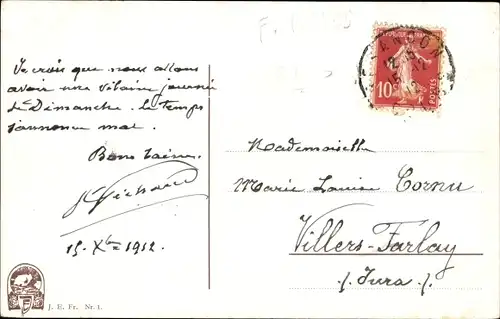 Je crois que nous allons
avoir une vilaine journée
de Dimanche. Le temps
s'annonce mal.
Bons baisers.
15. Xbre 1912
J. E. Fr. Nr. 1.
10c
POSTES
Mademoiselle
Marie Louise Cornu
Villers-Farlay
/. Jura /.